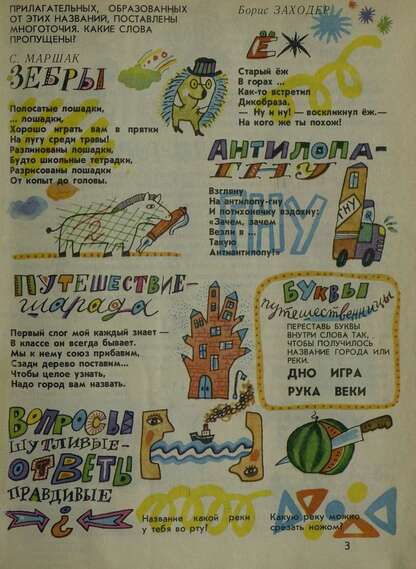 ПРИЛАГАТЕЛЬНЫХ, ОБРАЗОВАННЫХ
ОТ ЭТИХ НАЗВАНИЙ, ПОСТАВЛЕНЫ
МНОГОТОЧИЯ. КАКИЕ СЛОВА
ПРОПУЩЕНЫ?
С. МАРШАК
ЗЕБРЫ
Полосатые лошадки,
... лошадки,
Хорошо играть вам в прятки
На лугу среди травы!
Разлинованы лошадки,
Будто школьные тетрадки,
Разрисованы лошадки
От копыт до головы.
Борис ЗАХОДЕР
ЁЖ
Старый ёж
В горах ...
Как-то встретил
Дикобраза.
— Ну и ну! — воскликнул ёж.—
На кого же ты похож!
АНТИЛОПА-
ГНУ
Взгляну
На антилопу-гну
И потихонечку вздохну:
«Зачем, зачем
Везли в ...
Такую
Антиантилопу!»
ГНУ
ГНУ
ПУТЕШЕСТВИЕ-
шарада
Первый слог мой каждый знает —
В классе он всегда бывает.
Мы к нему союз прибавим,
Сзади дерево поставим...
Чтобы целое узнать,
Надо город вам назвать.
БУКВЫ
путешественницы
ПЕРЕСТАВЬ БУКВЫ
ВНУТРИ СЛОВА ТАК,
ЧТОБЫ ПОЛУЧИЛОСЬ
НАЗВАНИЕ ГОРОДА ИЛИ
РЕКИ.
ДНО ИГРА
РУКА ВЕКИ
ВОПРОСЫ
ШУТЛИВЫЕ-
ОТВЕТЫ
ПРАВДИВЫЕ
?
Название какой реки
у тебя во рту?
Какую реку можно
срезать ножом?
3